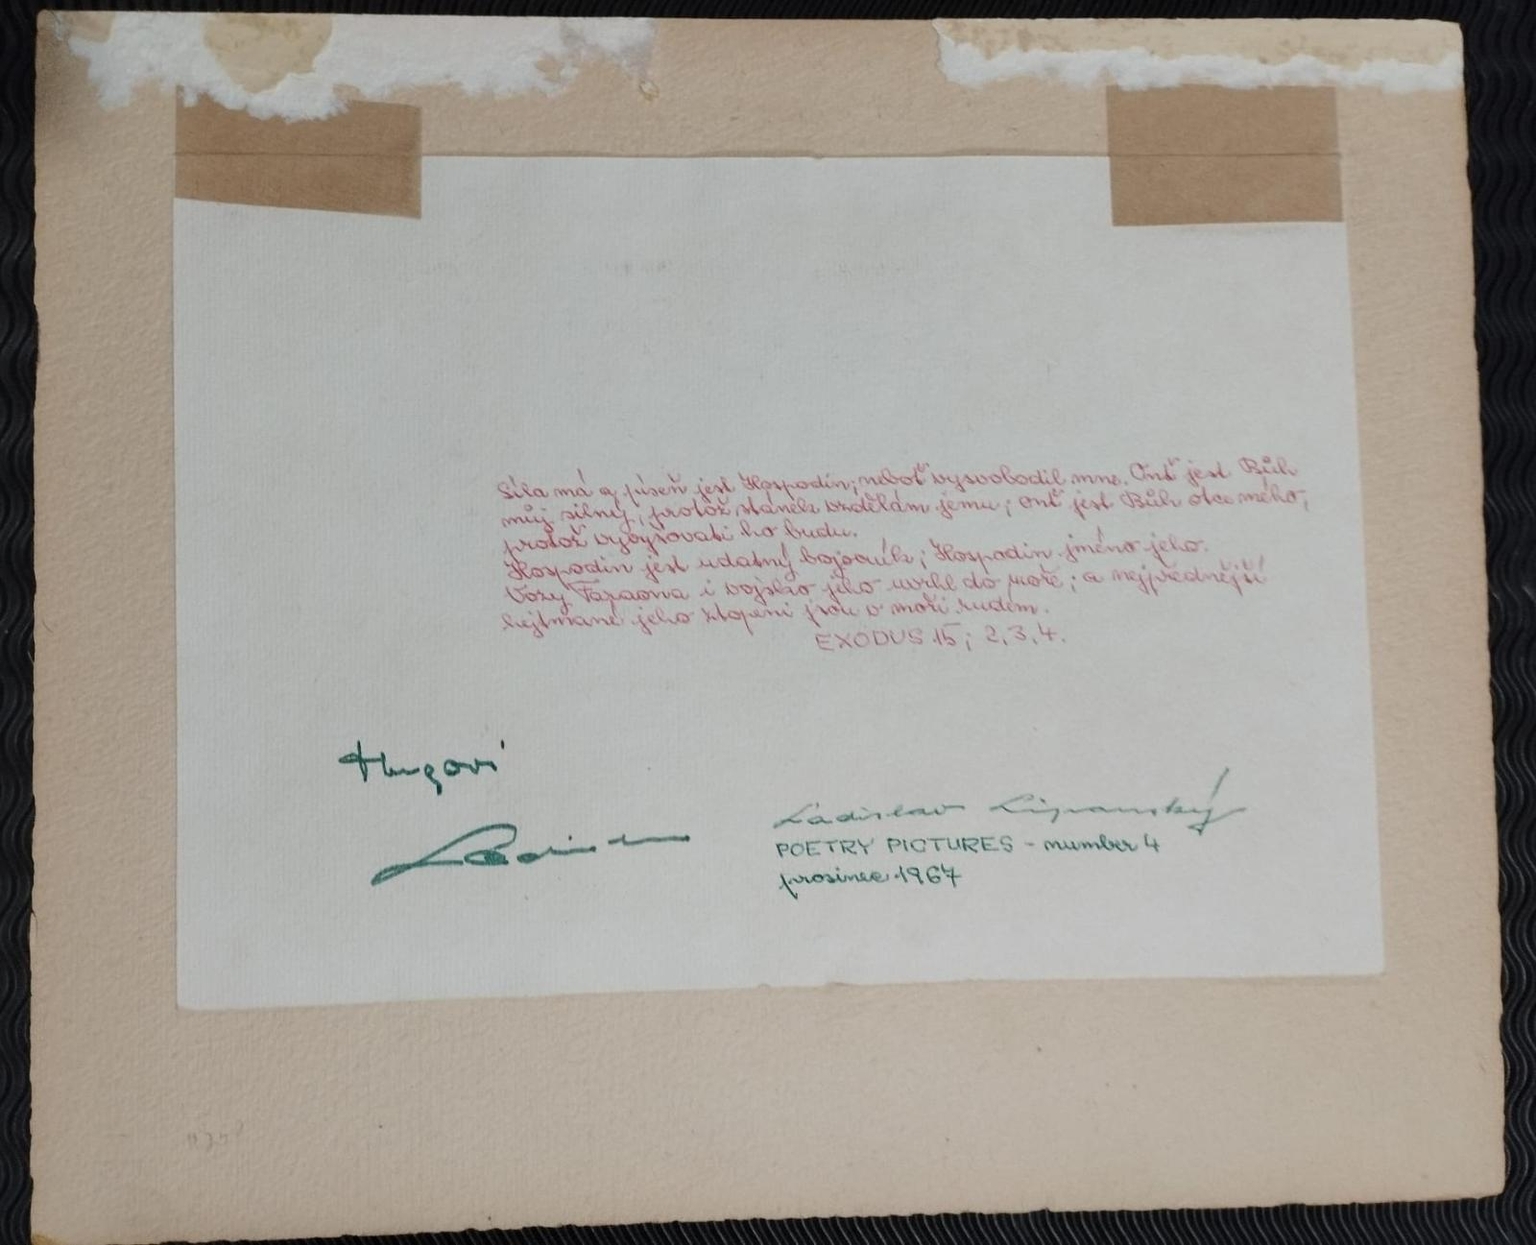 Síla má a píseň jest Hospodin; neboť vysvobodil mne. Onť jest Bůh
můj silný, protož stánek vzdělám jemu; onť jest Bůh otce mého,
protož vyvyšovati ho budu.
Hospodin jest udatný bojovník; Hospodin jméno jeho.
Vozy Faraona i vojsko jeho uvrhl do moře; a nejpřednější
hejtmané jeho ztopeni jsou v moři rudém.
EXODUS 15; 2,3,4.
Hugovi
Ladislav
POETRY PICTURES - number 4
prosinec 1967